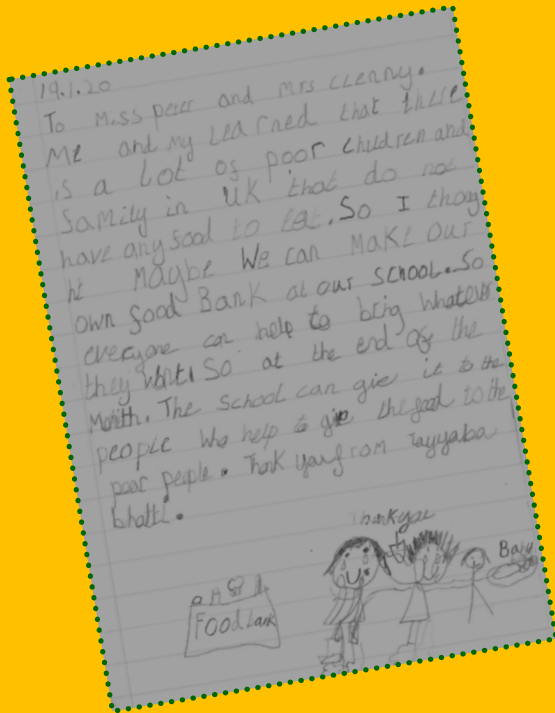 19.1.20
To Miss peter and Mrs
Me and my learned that there
is a lot os poor children and
Samily in UK that do not
have any sood to eat. So I thoug
ht Maybe We can Make our
own food Bank at our school. So
everyone can help to bring whatever
they want. So at the end of the
Month. The school can give it to the
people who help to give the food to the
poor people. Thank you from Tayyaba
bhatti.
Thankyou
Baby
Food bank